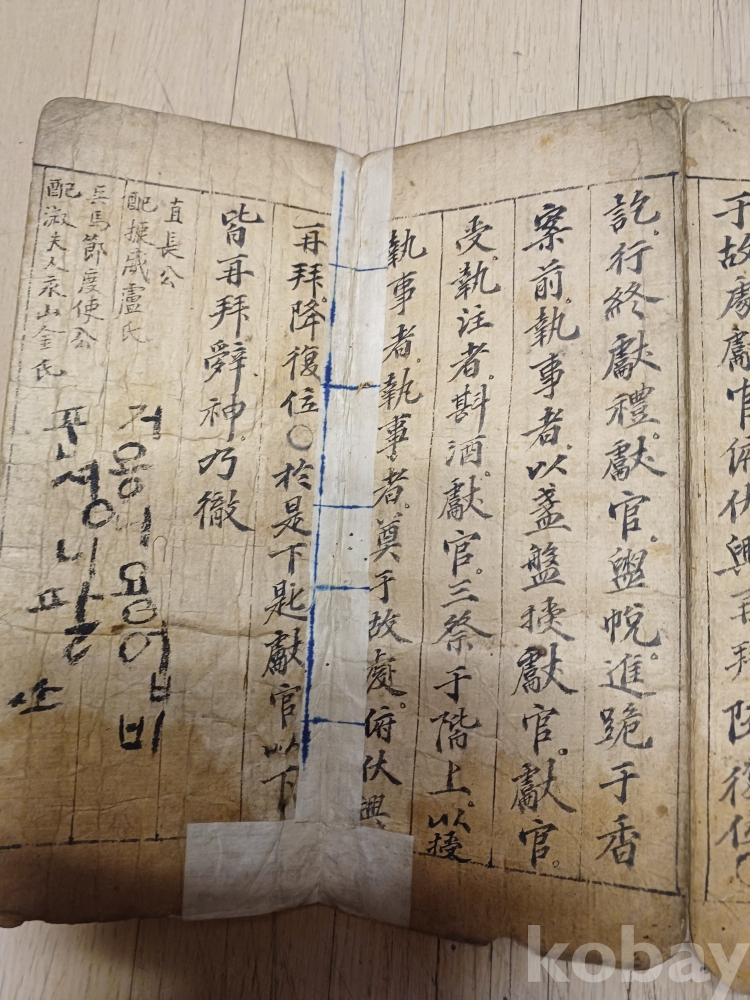 于故處獻官俯伏興再拜降復位○
訖。行終獻禮。獻官。盥帨。進跪于香
案前。執事者。以盞盤授獻官。獻官。
受。執注者。斟酒。獻官。三祭于階上。以授
執事者。執事者。奠于故處。俯伏興
再拜。降復位○於是下匙獻官以下
皆再拜辭神。乃徹
直長公
配盧氏
兵馬節度使公
配淑夫人金氏
kobay